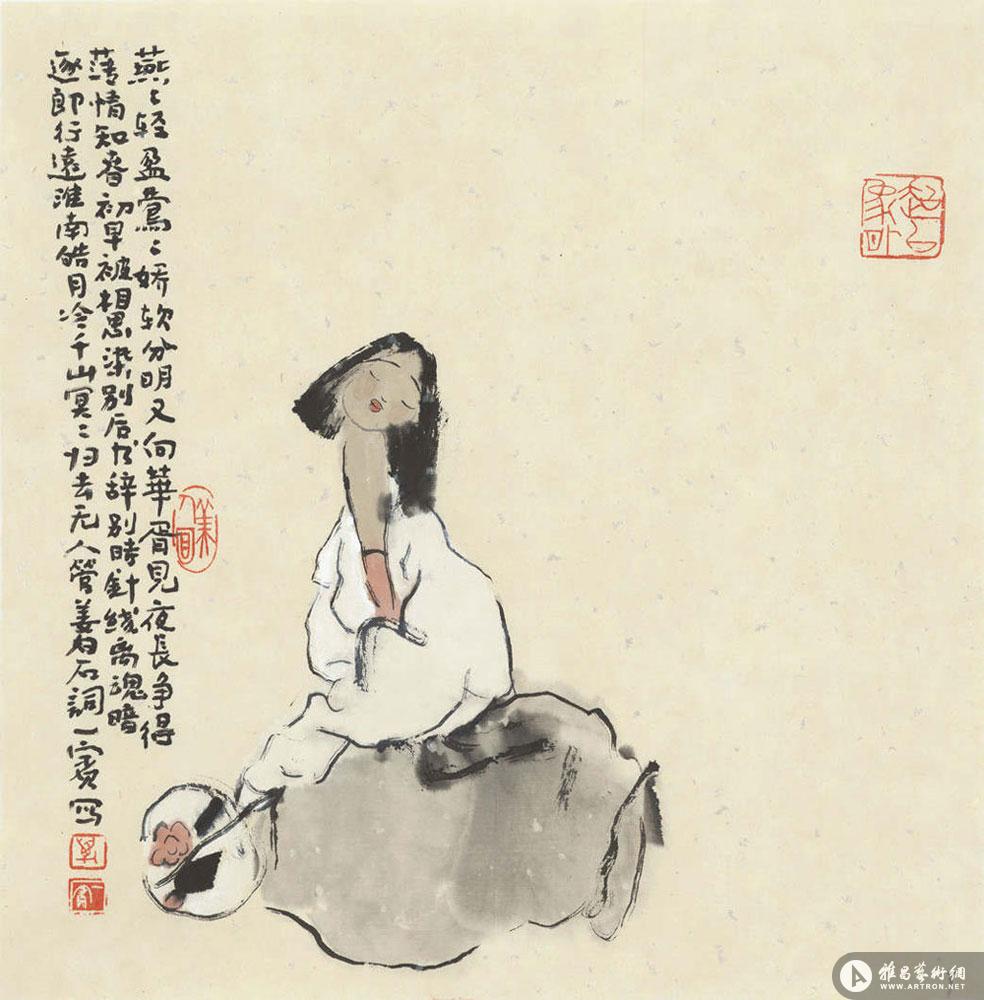 燕〻轻盈鶯〻娇软分明又向華胥見夜長争得
薄情知春初早被相思染别后书辞别時針线离魂暗
逐郎行遠淮南皓月冷千山冥〻归去无人管姜白石詞一賓写
雅昌藝術網
WWW.ARTRON.NET